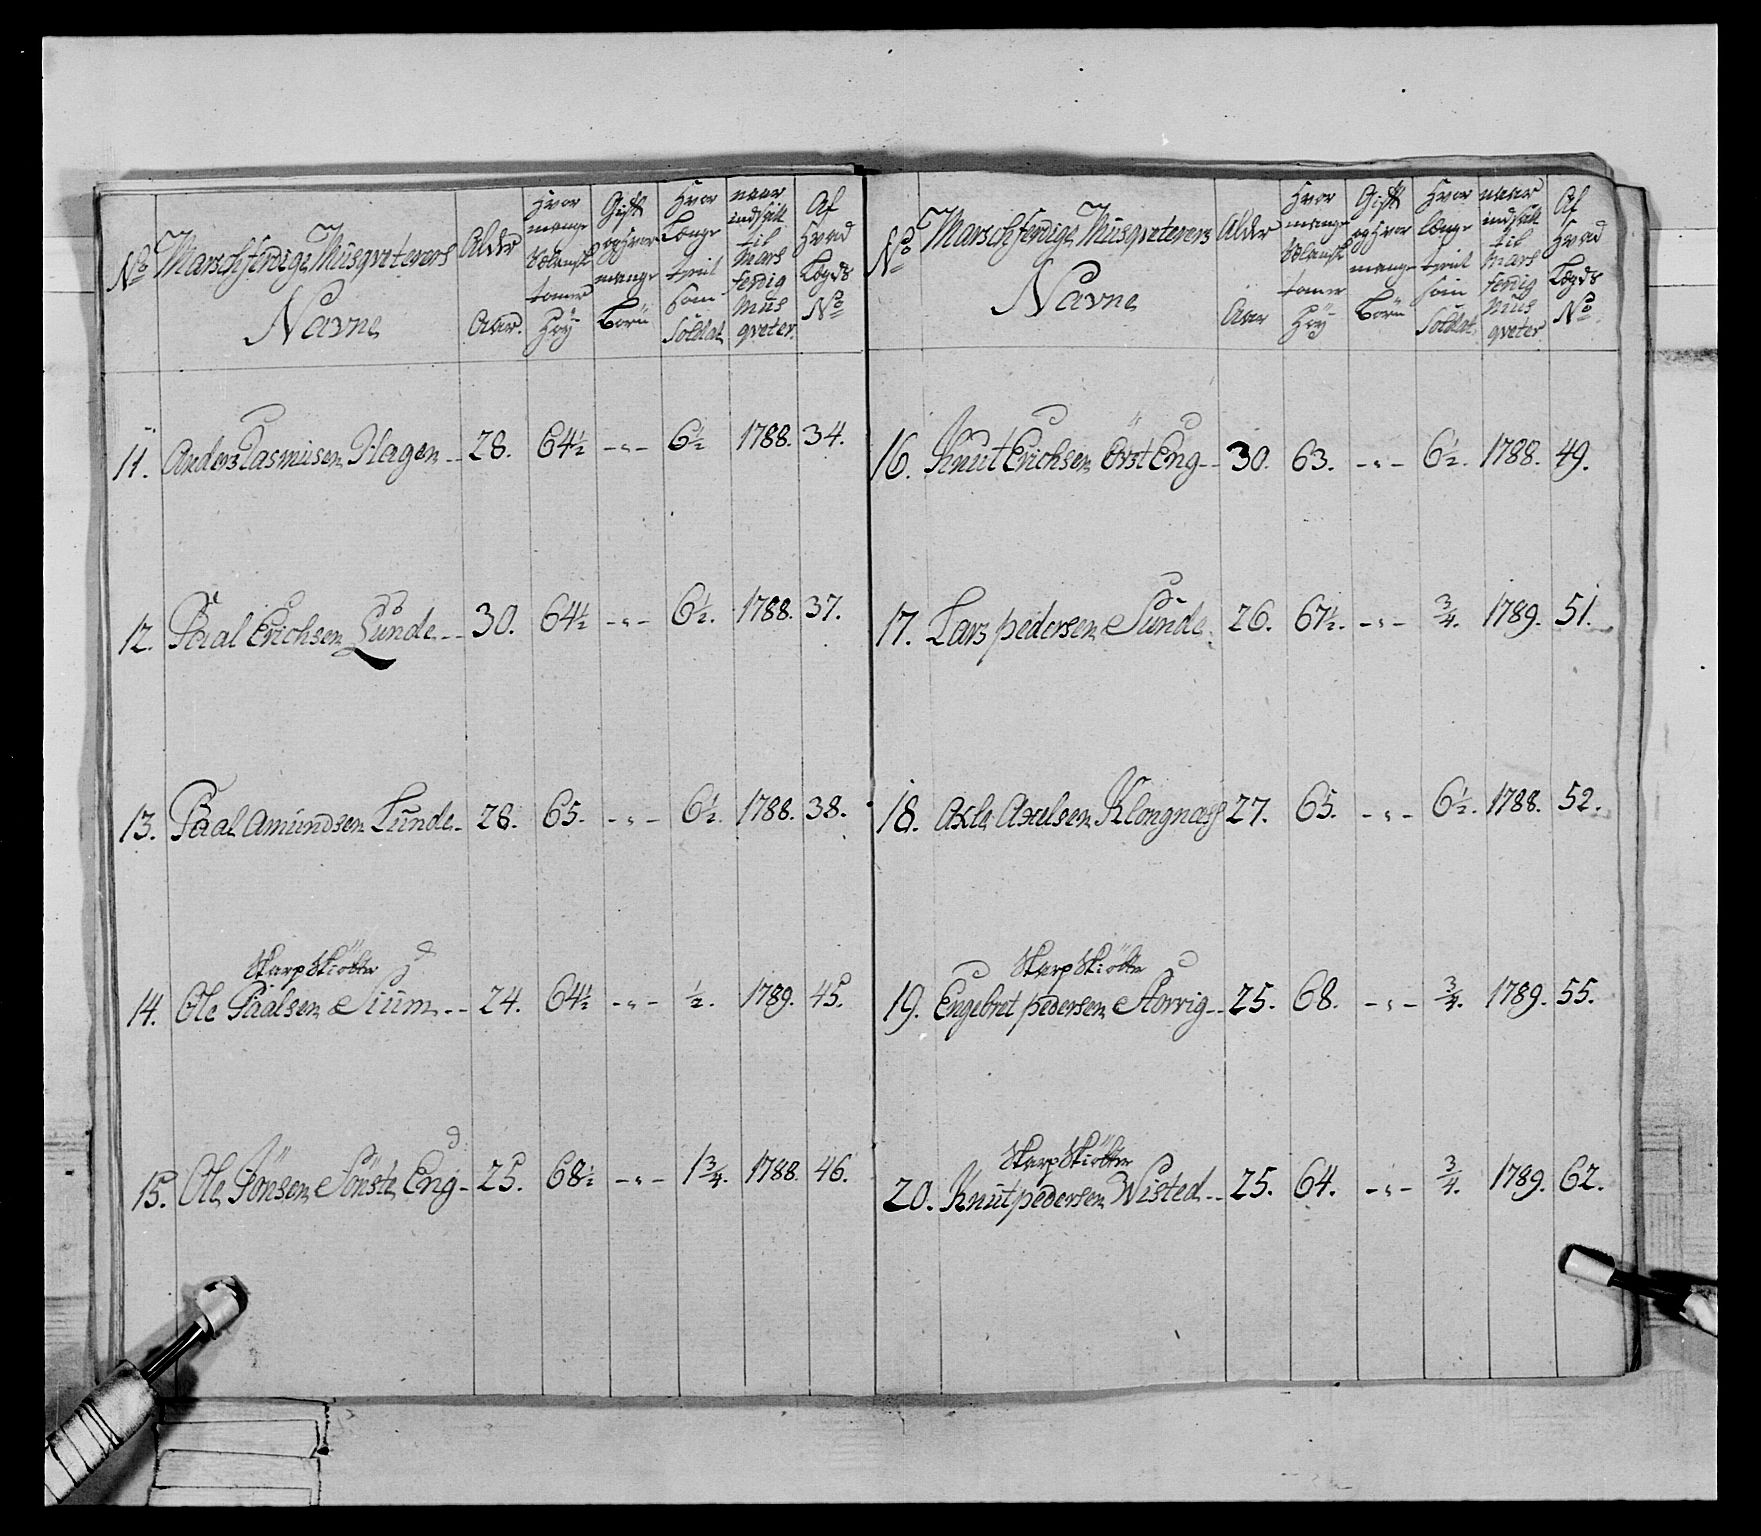 No
Marschferdige Musqveterers
Navne
Alder
Aar.
Hvor
mange
Sælansk
tomer
Höy
Gift
og Hvor
mange
Börn
Hvor
Længe
tient
som
Soldat
naar
indsatt
til
Mars
ferdig
Mus
qveter.
Af
Hvad
Lægds
No
11. Anders Rasmusen Hagen -- 28. 64½ -"- 6½ 1788. 34.
12. Paal Erichsen Lunde -- 30. 64½ -"- 6½. 1788. 37.
13. Paal Amundsen Lunde - 28. 65. -"- 6½. 1788. 38.
Skarp Skiötter
14. Ole Paalsen Sium -- 24. 64½ -"- ½. 1789. 45.
15. Ole Jönsen Sönste Eng - 25. 68½ -"- 1¾. 1788. 46.
No
Marschferdige Musqveterers
Navne
Alder
Aar
Hvor
mange
Sælansk
tomer
Höy
Gift
og Hvor
mange
Börn
Hvor
længe
tient
som
Soldat
naar
indsatt
til
Mars
ferdig
Mus
qveter
Af
Hvad
Lægds
No
16. Knut Erichsen Övst Eng -- 30. 63. -"- 6½. 1788. 49.
17. Lars pedersen Sunde. 26. 67½. -"- ¾. 1789. 51.
18. Axle Axelsen Klongnæss 27. 65. -"- 6½. 1788. 52.
Skarp Skiötter
19. Engebret pedersen Storvig -- 25. 68. -"- ¾. 1789. 55.
Skarp Skiötter
20. Knut pedersen Wisted -- 25. 64. -"- ¾. 1789. 62.